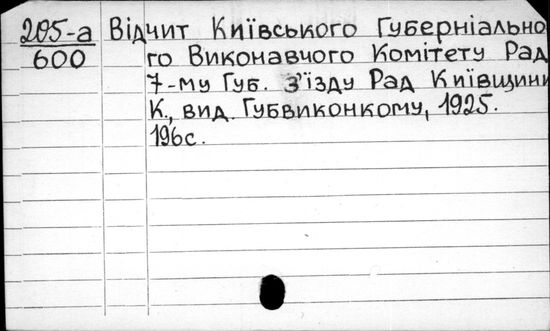 205-а Відчит Київського Губерніально
600 го Виконавчого Комітету Рад
7-му Губ. З'їзду Рад Київщини
К., вид. Губвиконкому, 1925.
196с.